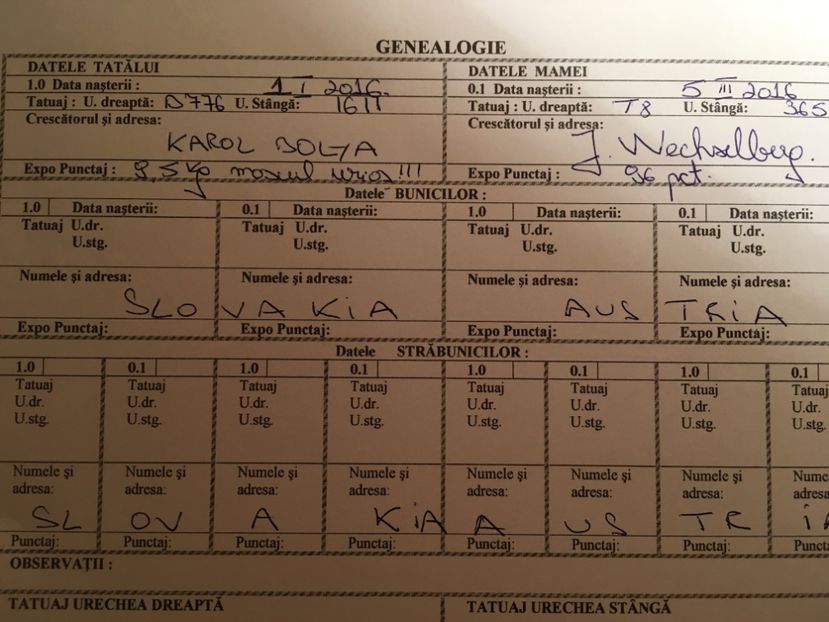 GENEALOGIE
DATELE TATĂLUI
1.0 Data nașterii : 1 I 2016.
Tatuaj : U. dreaptă: D776 U. Stângă: 1611
Crescătorul și adresa:
KAROL BOLYA
Expo Punctaj : 9,5 kg mascul urias!!!
DATELE MAMEI
0.1 Data nașterii : 5 III 2016
Tatuaj : U. dreaptă: T8 U. Stângă: 365
Crescătorul și adresa:
J. Wechselberg.
Expo Punctaj : 96 pct.
Datele BUNICILOR :
1.0 Data nașterii: 0.1 Data nașterii: 1.0 Data nașterii: 0.1 Data nașterii:
Tatuaj U.dr. Tatuaj U.dr. Tatuaj U.dr. Tatuaj U.dr.
U.stg. U.stg. U.stg. U.stg.
Numele și adresa: Numele și adresa: Numele și adresa: Numele și adresa:
SLOVAKIA AUSTRIA
Expo Punctaj: Expo Punctaj: Expo Punctaj: Expo Punctaj:
Datele STRĂBUNICILOR :
1.0 0.1 1.0 0.1 1.0 0.1 1.0 0.1
Tatuaj Tatuaj Tatuaj Tatuaj Tatuaj Tatuaj Tatuaj Tatuaj
U.dr. U.dr. U.dr. U.dr. U.dr. U.dr. U.dr. U.dr.
U.stg. U.stg. U.stg. U.stg. U.stg. U.stg. U.stg. U.stg.
Numele și Numele și Numele și Numele și Numele și Numele și Numele și Nume
adresa: adresa: adresa: adresa: adresa: adresa: adresa: adresa
SL OV A KiA A US TR iA
Punctaj: Punctaj: Punctaj: Punctaj: Punctaj: Punctaj: Punctaj: Punct
OBSERVAȚII :
TATUAJ URECHEA DREAPTĂ TATUAJ URECHEA STÂNGĂ